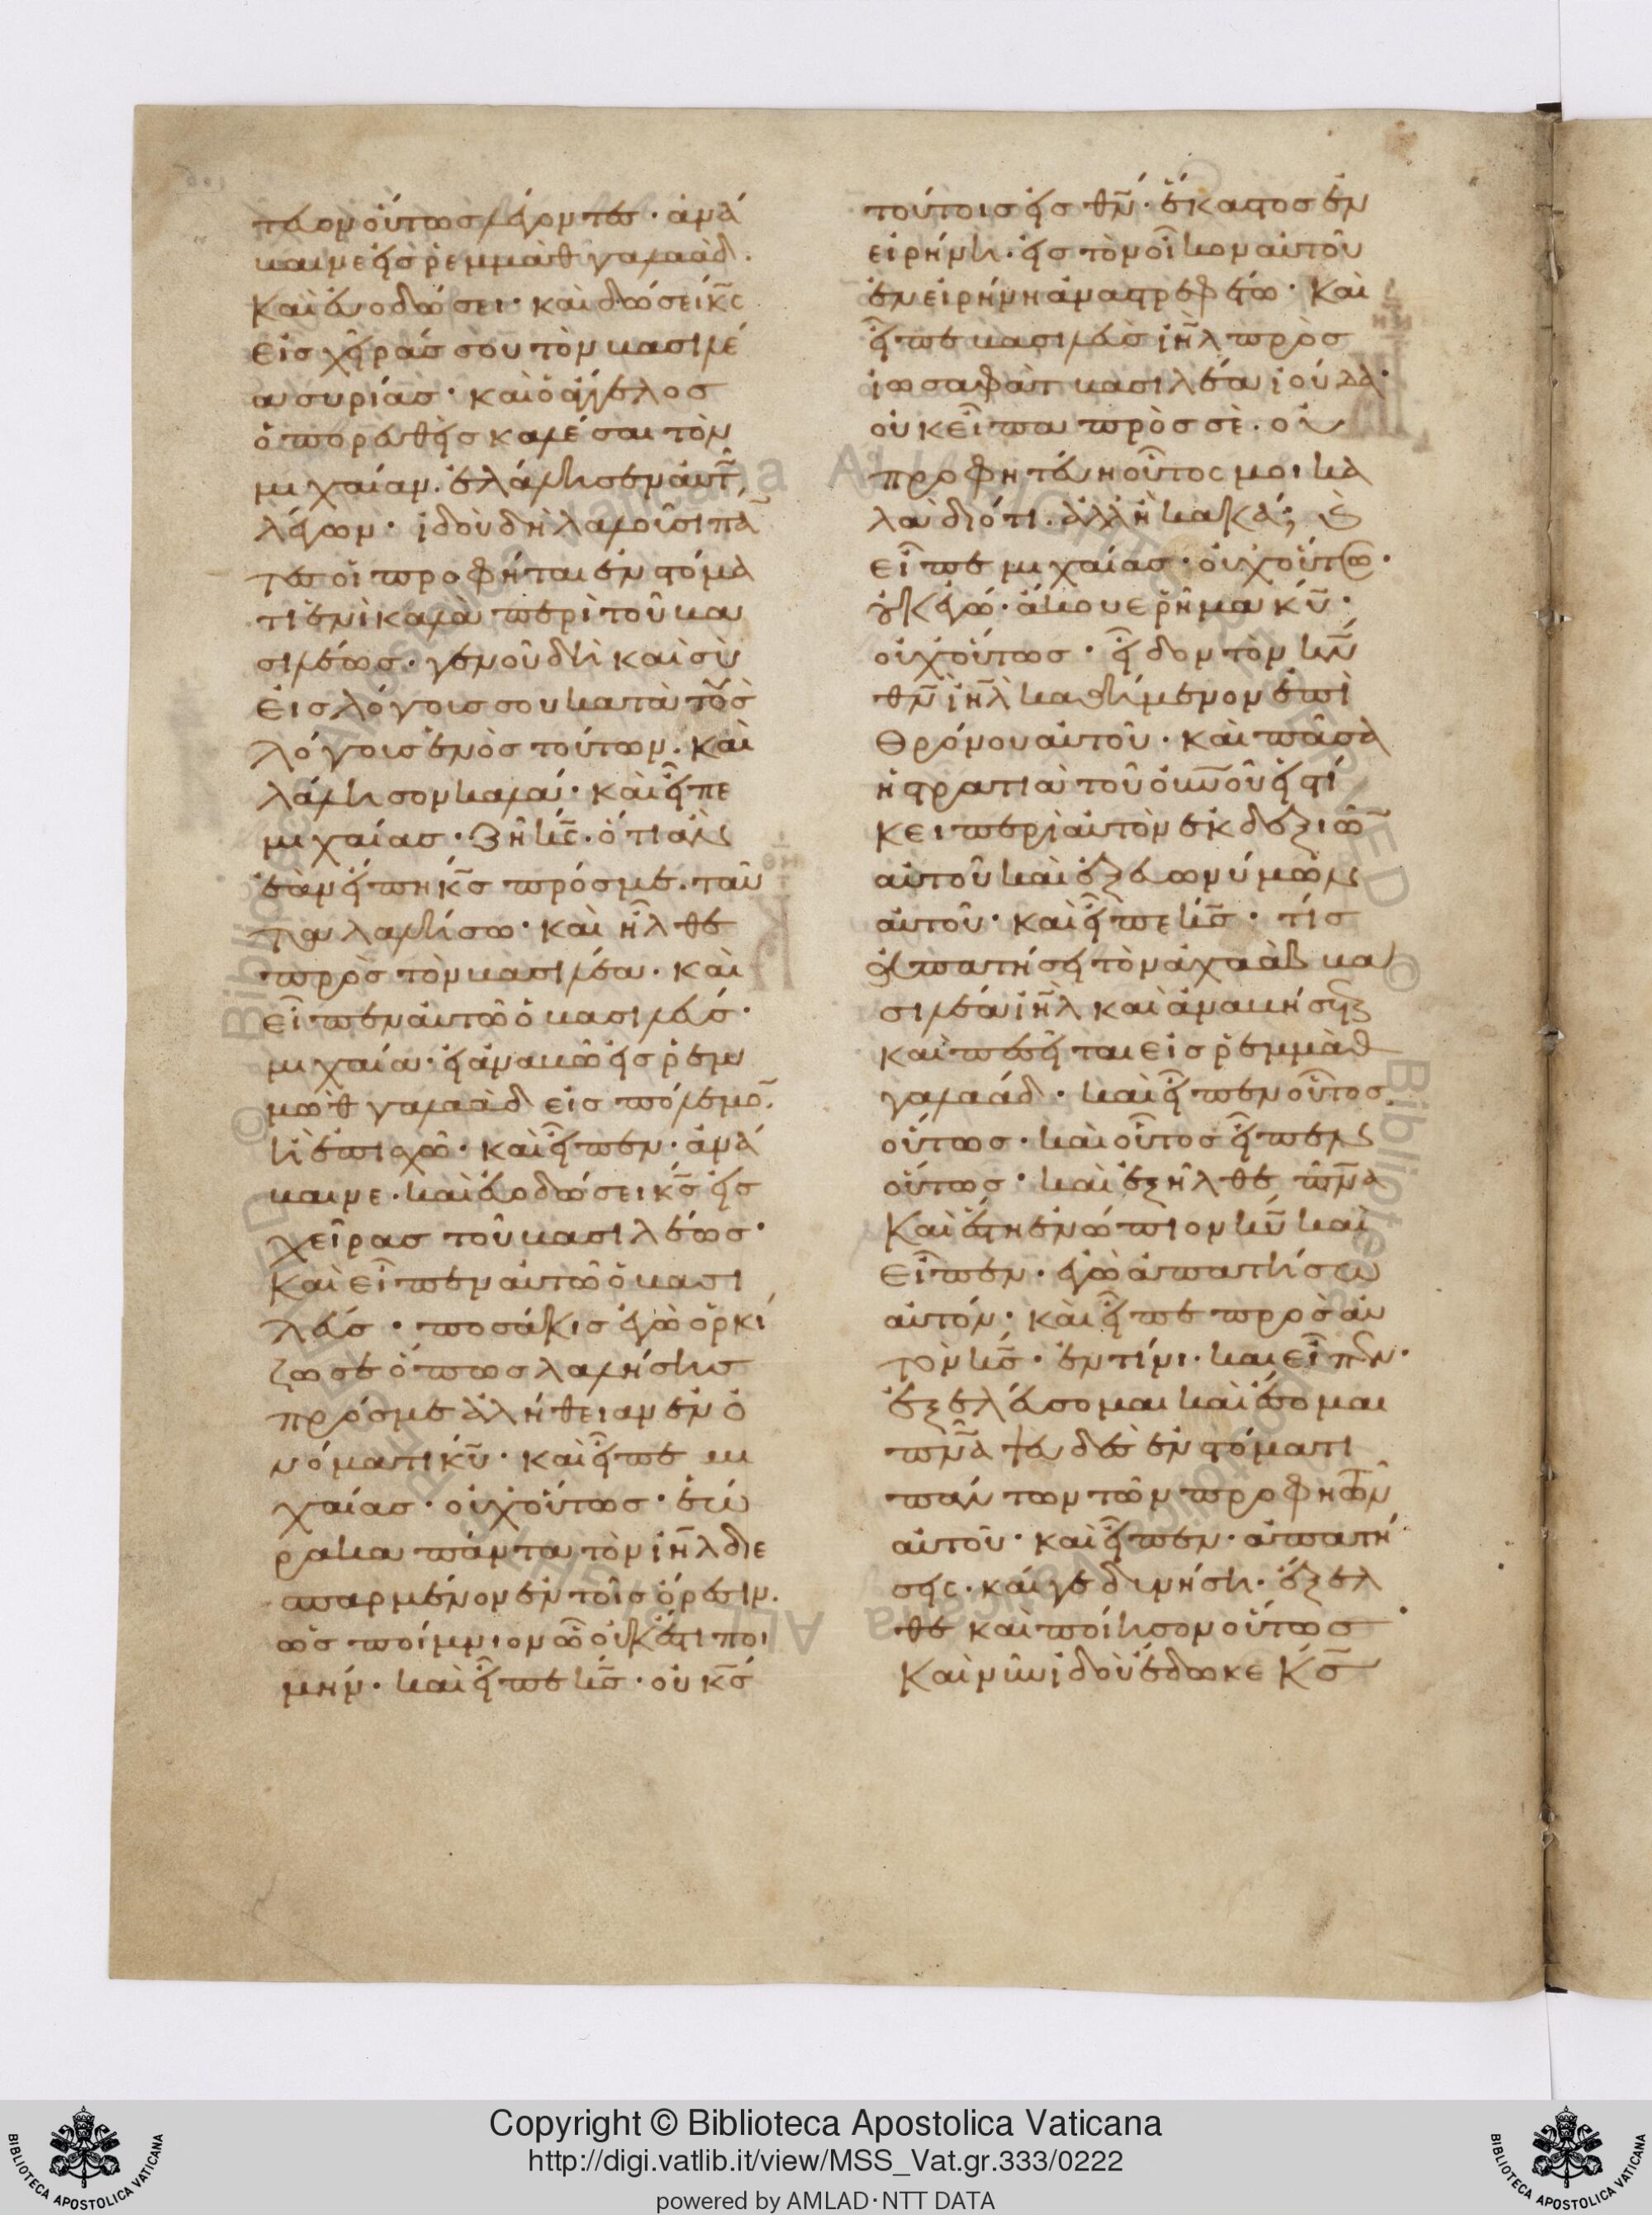 τευον οὕτως λέγοντες· ἀνά
βαινε εἰς ῥεμμὰθ γαλαὰδ·
καὶ εὐοδώσει· καὶ δώσει κ̅ς
εἰς χεῖράς σου τὸν βασιλέ
α συρίας· καὶ ὁ ἄγγελος
ὁ πορευθεὶς καλέσαι τὸν
μιχαίαν. ἐλάλησεν αὐτῶ
λέγων· ἰδοὺ δὴ λαλοῦσι πά
τες οἱ προφῆται ἐν στόμα
τι ἑνὶ καλὰ περὶ τοῦ βα
σιλέως. γενοῦ δὴ καὶ σὺ
εἰς λόγους σου κατὰ τοὺς
λόγους ἑνὸς τούτων. καὶ
λάλησον καλά· καὶ εἶπε
μιχαίας· ζῆ κ̅ς. ὅτι ἃ
ἐὰν εἴπη κ̅ς πρός με. ταῦ
τα λαλήσω· καὶ ἦλθε
πρὸς τὸν βασιλέα. καὶ
εἶπεν αὐτῶ ὁ βασιλεύς·
μιχαία· εἰ ἀναβῶ εἰς ῥεμ
μὼθ γαλαὰδ εἰς πόλεμο̅.
ἢ ἐπισχῶ· καὶ εἶπεν· ἀνά
βαινε. καὶ εὐοδώσει κ̅ς εἰς
χεῖρας τοῦ βασιλέως·
καὶ εἶπεν αὐτῶ ὁ βασι
λεύς· ποσάκις ἐγὼ ὁρκί
ζω σε ὅπως λαλήσης
πρός με ἀλήθειαν ἐν ὀ
νόματι κ̅υ· καὶ εἶπε μι
χαίας· οὐχ οὕτως· ἑώ
ρακα πάντα τὸν ι̅η̅λ διε
σπαρμένον ἐν τοῖς ὄρεσιν.
ὡς ποίμνιον ὧ οὐκ ἔστι ποι
μήν. καὶ εἶπε κ̅ς· οὐ κ̅ς
τούτοις εἰς θ̅ν· ἕκαστος ἐν
εἰρήνη· εἰς τὸν οἶκον αὐτοῦ
ἐν εἰρήνη ἀναστρεφέτω· καὶ
εἶπε βασιλεὺς ι̅η̅λ πρὸς
ἰωσαφὰτ βασιλέα ἰούδα·
οὐκ εἶπα πρὸς σέ. οὐ
προφητεύη οὗτός μοι κα
λὰ διότι. ἀλλ' ἢ κακά; καὶ
εἶπε μιχαίας· οὐχ οὕτως·
οὐκ ἐγώ· ἄκουε ῥῆμα κ̅υ·
οὐχ οὕτως· εἶδον τὸν κ̅ν
θ̅ν ι̅η̅λ καθήμενον ἐπὶ
θρόνου αὐτοῦ· καὶ πᾶσα
ἡ στρατιὰ τοῦ ο̅υ̅ν̅ο̅υ εἱστή
κει περὶ αὐτὸν ἐκ δεξιῶ̅
αὐτοῦ καὶ ἐξ εὐωνύμων
αὐτοῦ· καὶ εἶπε κ̅ς· τίς
ἀπατήσει τὸν ἀχαὰβ βα
σιλέα ι̅η̅λ καὶ ἀναβήσεται
καὶ πεσεῖται εἰς ῥεμμὰθ
γαλαάδ· καὶ εἶπεν οὗτος
οὕτως· καὶ οὗτος εἶπεν
οὕτως· καὶ ἐξῆλθε π̅ν̅α
καὶ ἔστη ἐνώπιον κ̅υ καὶ
εἶπεν· ἐγὼ ἀπατήσω
αὐτόν· καὶ εἶπε πρὸς αὐ
τὸν κ̅ς· ἐν τίνι· καὶ εἶπεν·
ἐξελεύσομαι καὶ ἔσομαι
π̅ν̅α ψευδὲς ἐν στόματι
πάντων τῶν προφητῶν
αὐτοῦ· καὶ εἶπεν· ἀπατή
σεις· καί γε δυνήση· ἔξελ
θε καὶ ποίησον οὕτως
καὶ νῦν ἰδοὺ ἔδωκε κ̅ς
Copyright © Biblioteca Apostolica Vaticana
http://digi.vatlib.it/view/MSS_Vat.gr.333/0222
powered by AMLAD·NTT DATA
BIBLIOTECA APOSTOLICA VATICANA
BIBLIOTECA APOSTOLICA VATICANA